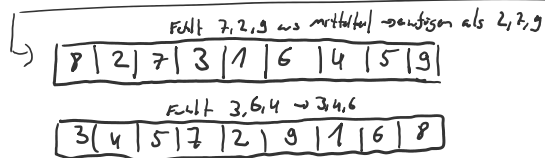 Fehlt 7,2,9 aus mittelteil → einfügen als 2,7,9
8 | 2 | 7 | 3 | 1 | 6 | 4 | 5 | 9
Fehlt 3,6,4 → 3,4,6
3 | 4 | 5 | 7 | 2 | 9 | 1 | 6 | 8